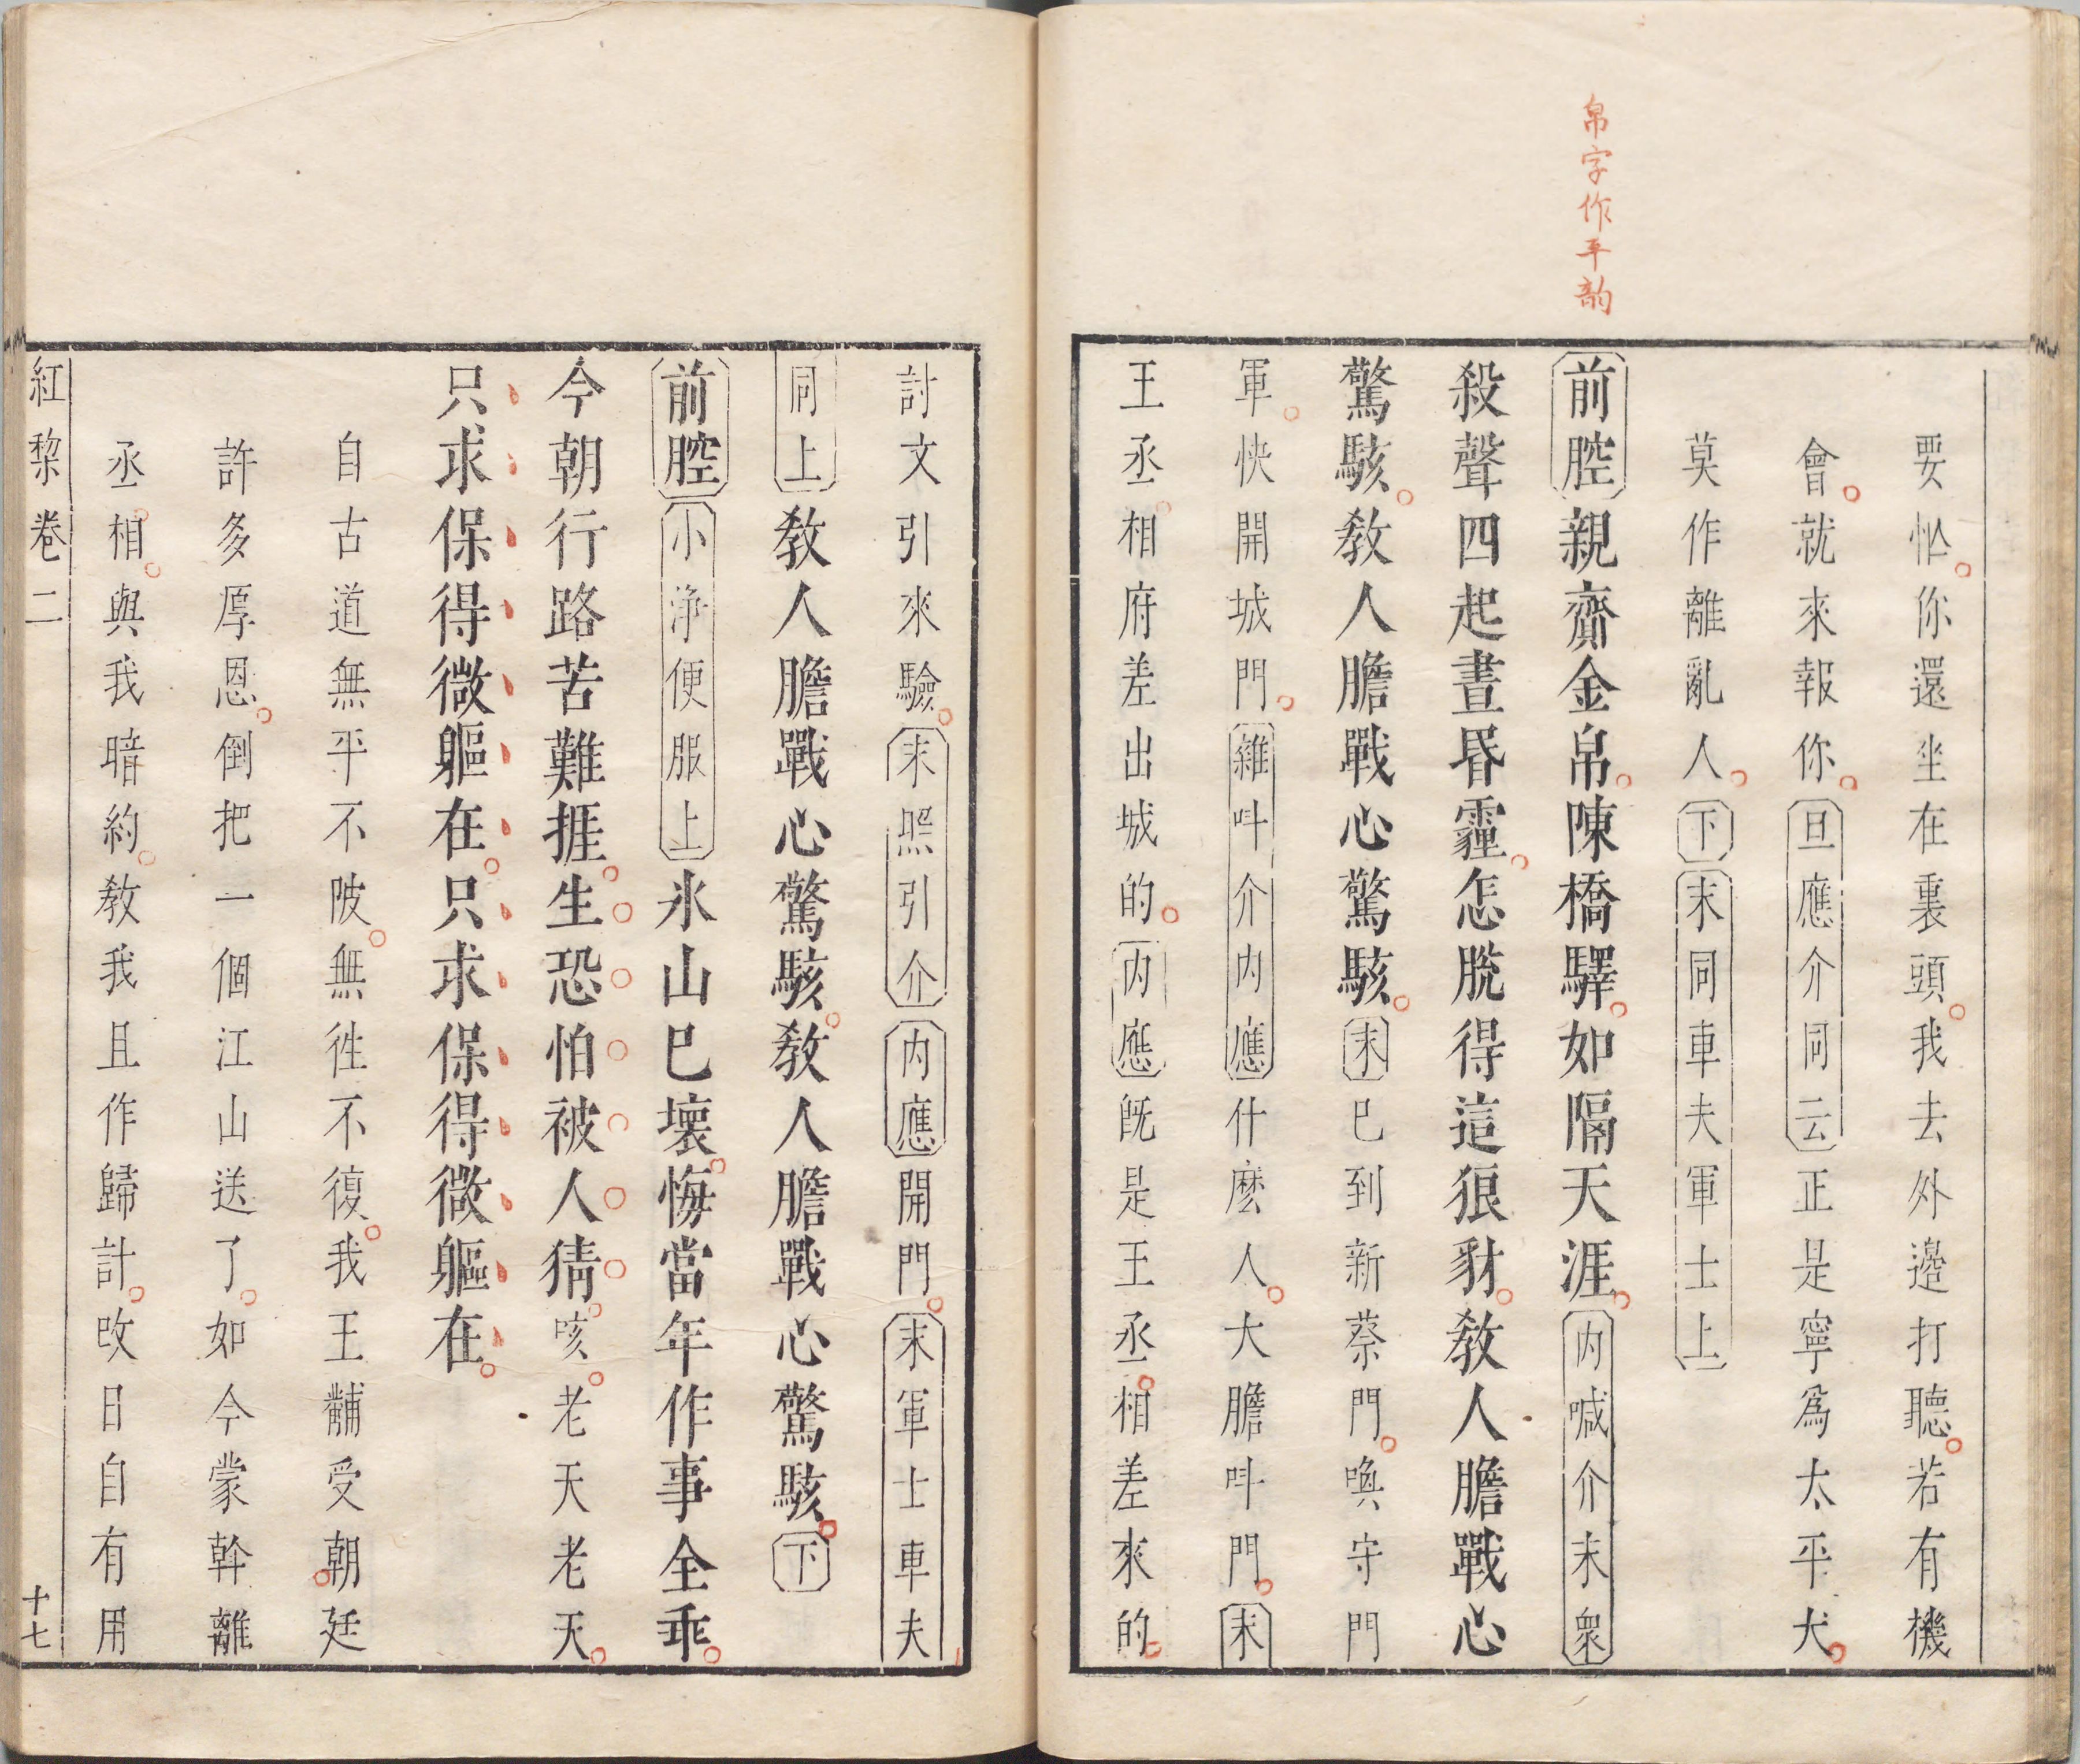 帛字作平韵
要怭你還坐在裏頭我去外邉打聽若有機
會就來報你旦應介同云正是寧爲太平犬
莫作離亂人下末同車夫軍士上
前腔親齎金帛陳橋驛如隔天涯内喊介末衆
殺聲四起晝昏霾怎脫得這狼豺教人膽戰心
驚駭教人膽戰心驚駭末巳到新蔡門喚守門
軍快開城門雜呌介内應什麽人大膽呌門末
王丞相府差出城的内應旣是王丞相差來的
討文引來驗末照引介内應開門末軍士車夫
同上教人膽戰心驚駭教人膽戰心驚駭下
前腔小淨便服上氷山巳壞悔當年作事全乖
今朝行路苦難捱生恐怕被人猜咳老天老天
只求保得微軀在只求保得微軀在
自古道無平不陂無徃不復我王黼受朝廷
許多厚恩倒把一個江山送了如今蒙幹離
丞相與我暗約教我且作歸計改日自有用
紅黎卷二
十七